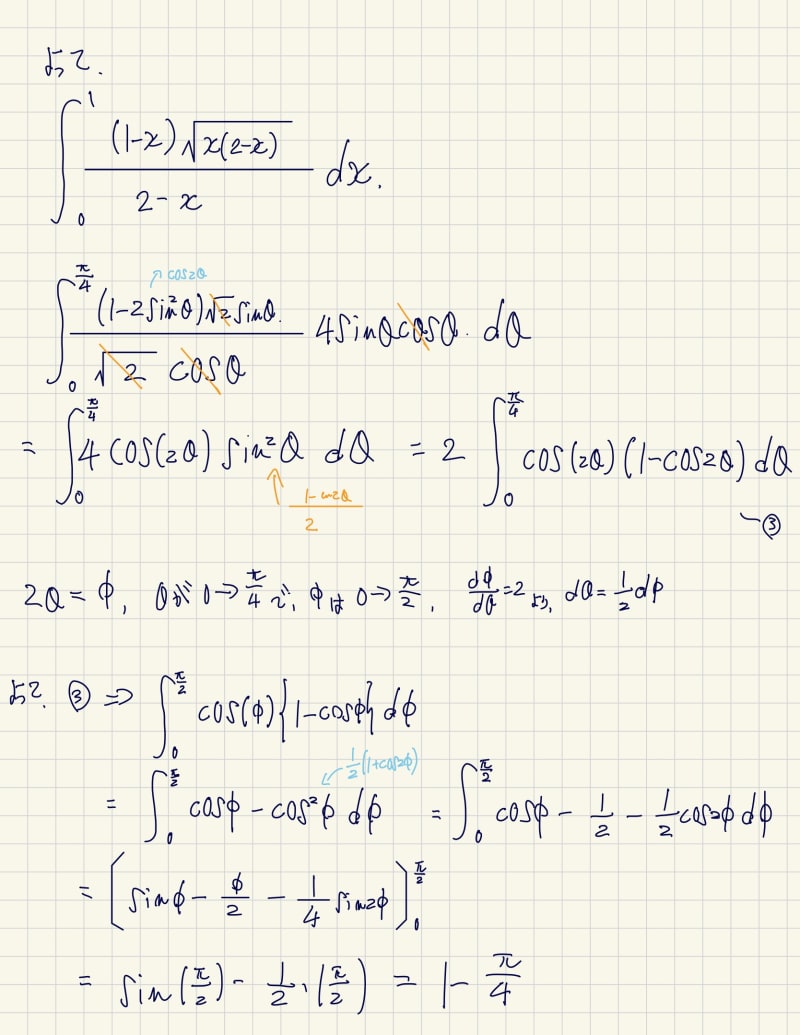 よって.
∫₀¹ (1-x)√(x(2-x)) / (2-x) dx.
↗ cos2θ
∫₀^{π/4} (1-2sin²θ)√2 sinθ. / (√2 cosθ) 4sinθcosθ. dθ
= ∫₀^{π/4} 4 cos(2θ) sin²θ dθ = 2 ∫₀^{π/4} cos(2θ)(1-cos2θ)dθ
↑ (1-cos2θ)/2
~③
2θ = φ, θが 0→π/4 で, φは 0→π/2, dφ/dθ=2 より, dθ=1/2 dφ
よって. ③ ⇒ ∫₀^{π/2} cos(φ){1-cosφ}dφ
↙ 1/2(1+cos2φ)
= ∫₀^{π/2} cosφ - cos²φ dφ = ∫₀^{π/2} cosφ - 1/2 - 1/2 cos2φ dφ
= [sinφ - φ/2 - 1/4 sin2φ]₀^{π/2}
= sin(π/2) - 1/2 · (π/2) = 1 - π/4